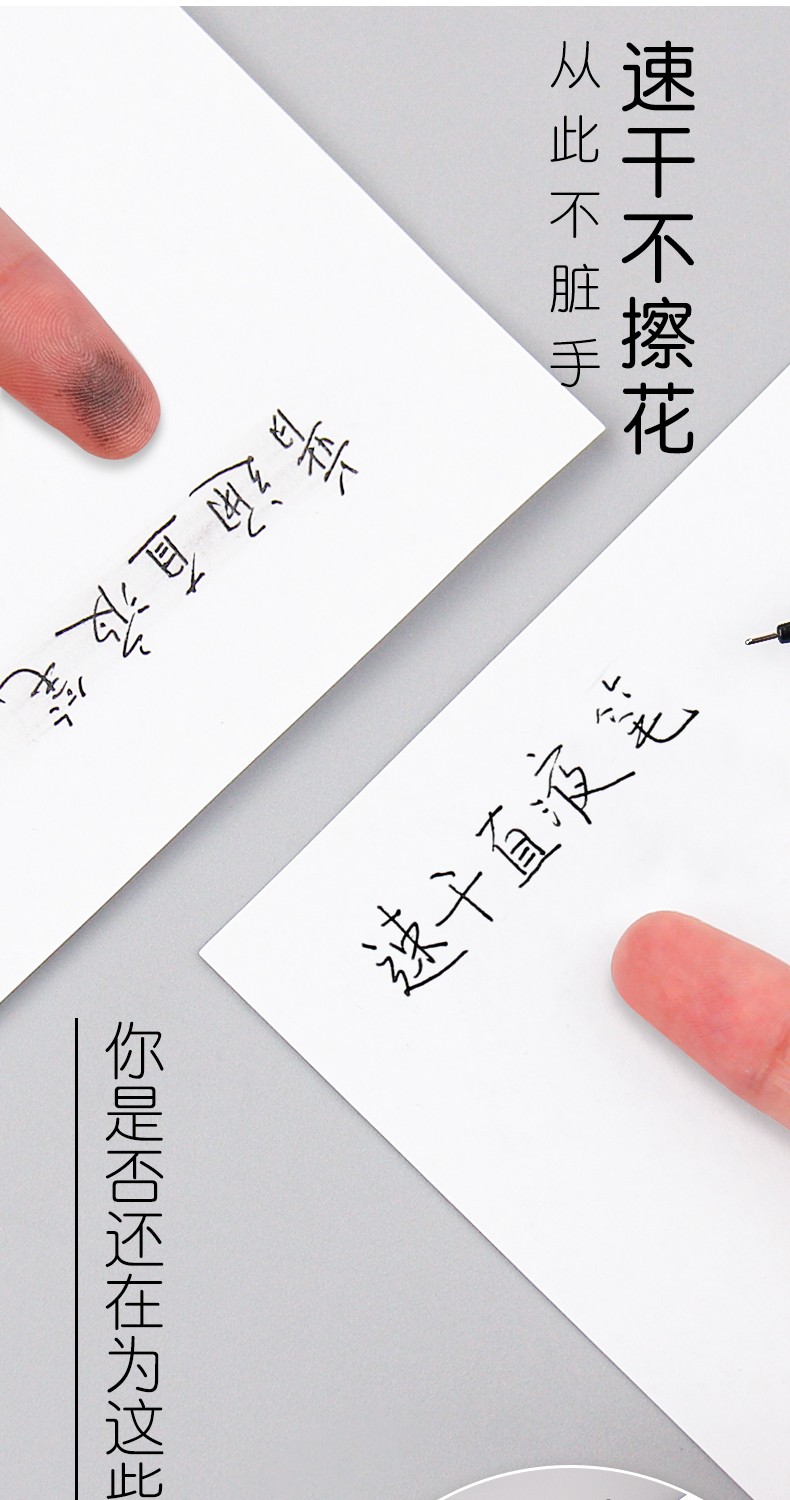 速干不擦花
从此不脏手
普通直液笔
速干直液笔
你是否还在为这